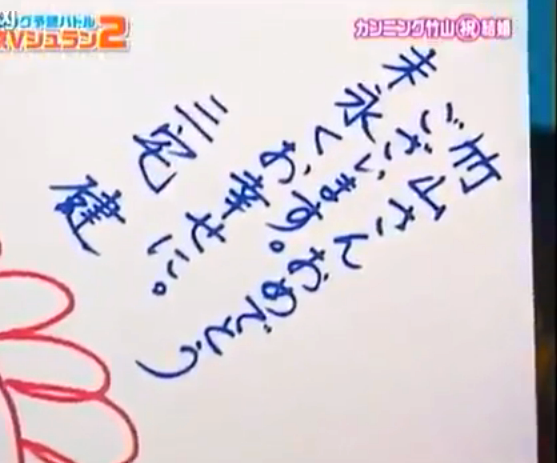 グ予想バトル
Vシュラン2
カンニング竹山㊗結婚
竹山さんおめでとう
ございます。
末永くお幸せに。
三宅 健